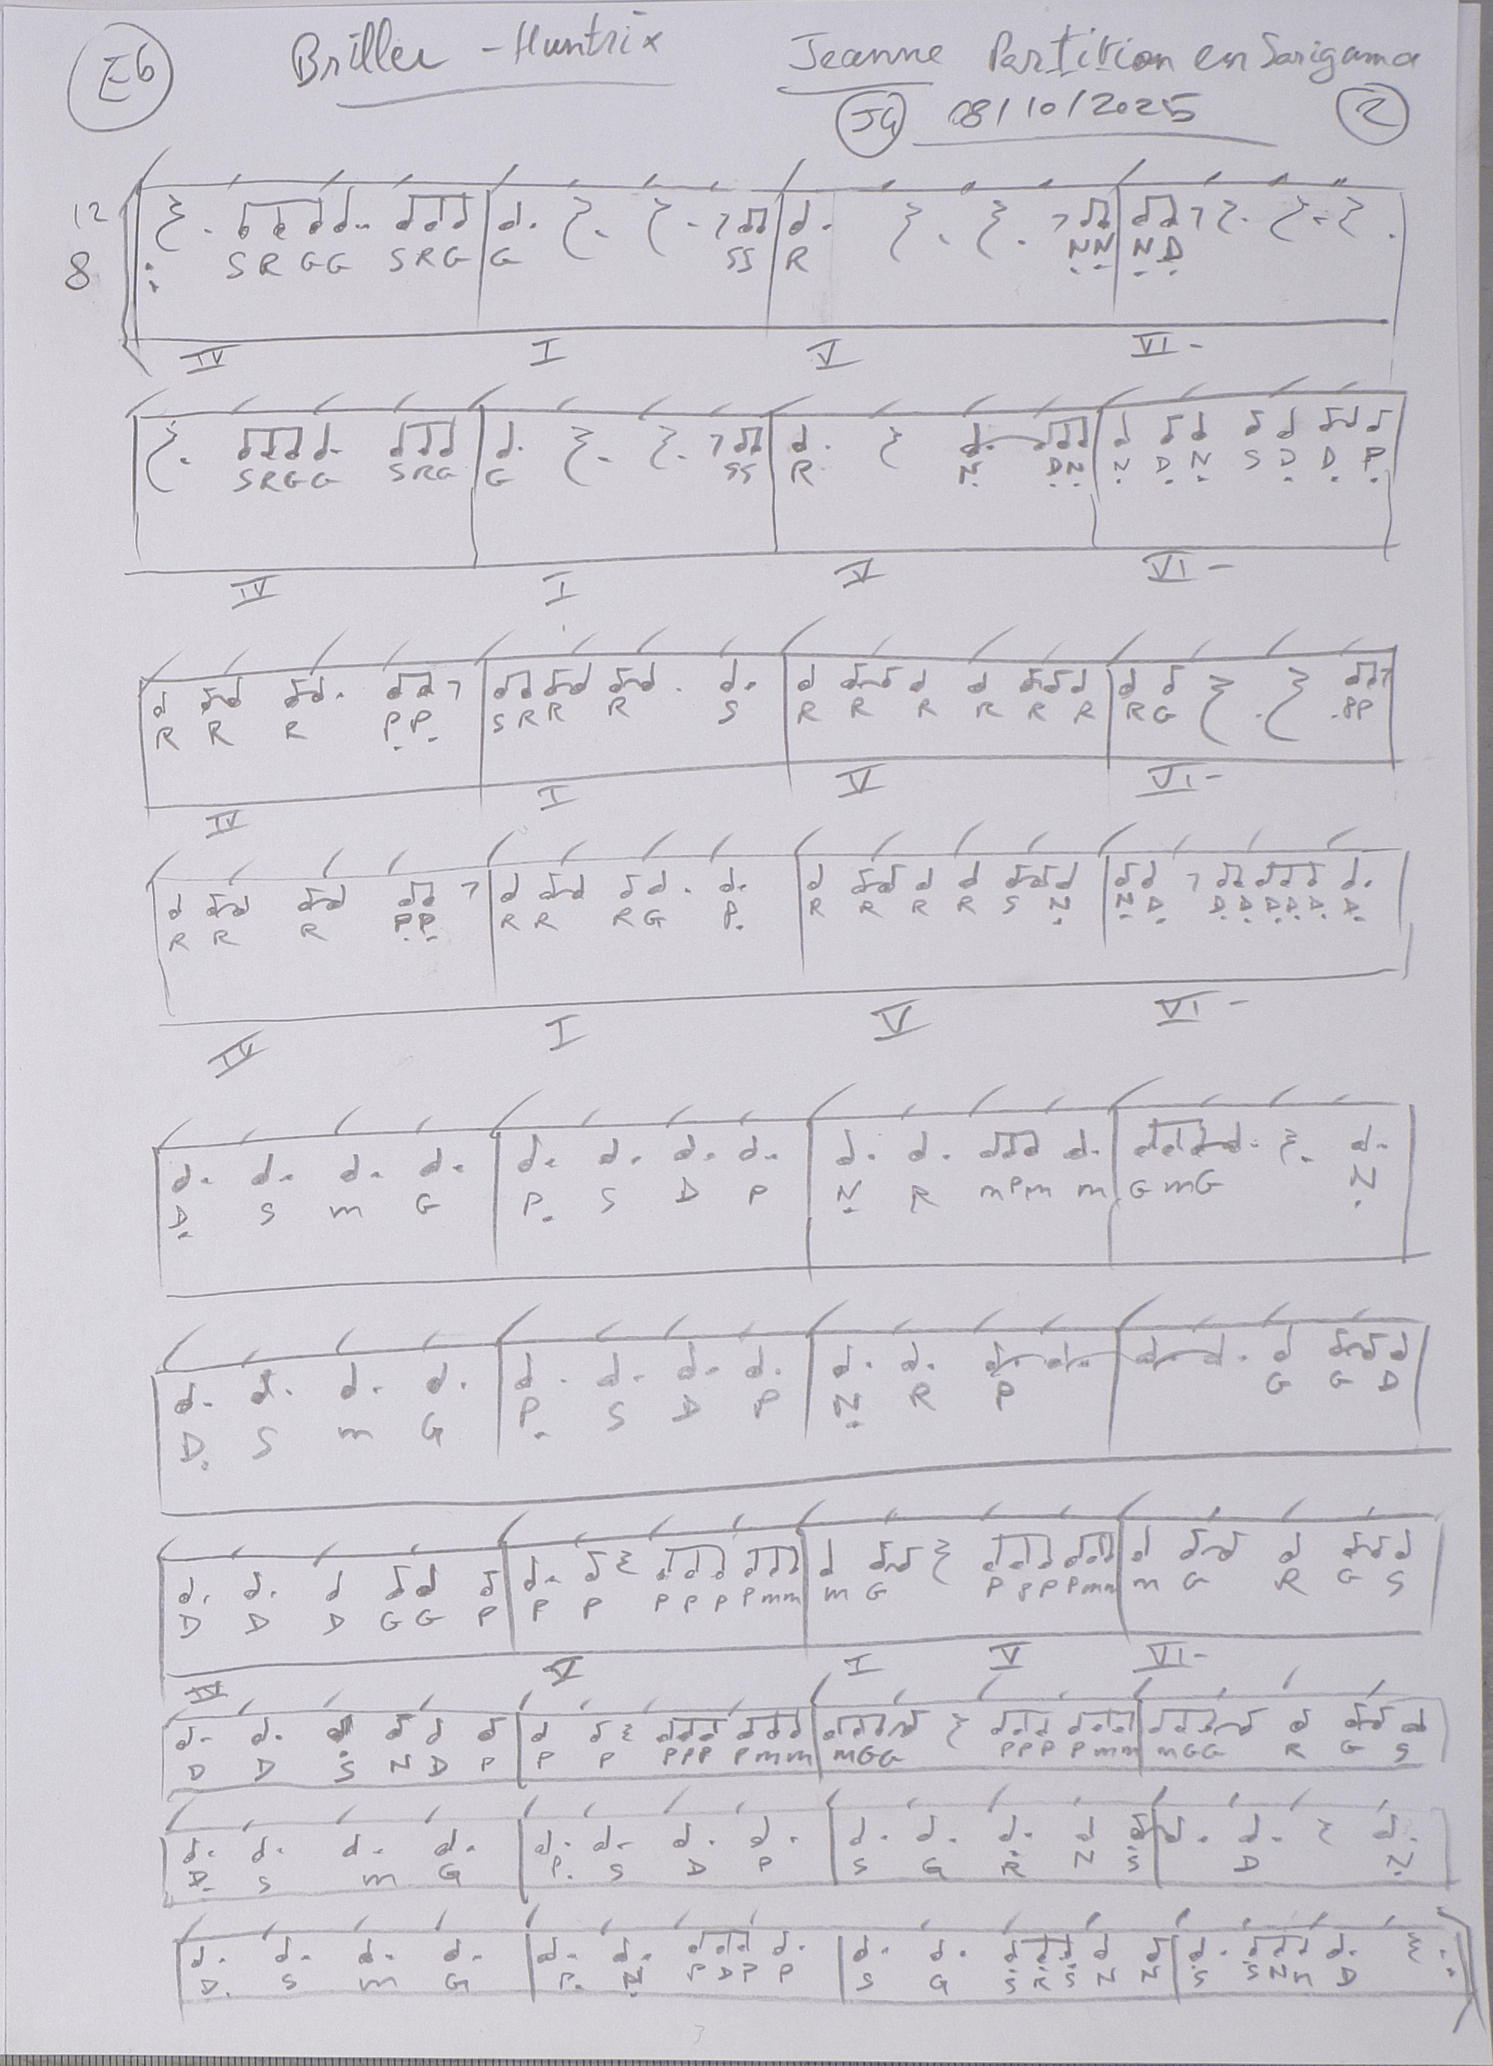 Eb Briller - Huntrix Jeanne Partition en Sarigama
JG 08/10/2025 2
12
8
S R G G S R G G S S R N N N D
IV I V VI-
S R G G S R G G S S R N D N N D N S D D P
IV I V VI-
R R R P P S R R R S R R R R R R R G P P
IV I V VI-
R R R P P R R R G P R R R R S N N D D D D D D D
IV I V VI-
D S m G P S D P N R m P m m G m G N
D S m G P S D P N R P G G D
D D D G G P P P P P P P m m m G P P P P m m m G R G S
IV V I V VI-
D D S N D P P P P P P P m m m G G P P P P m m m G G R G S
D S m G P S D P S G R N S D N
D S m G P N P D P P S G S R S N N S S N m D